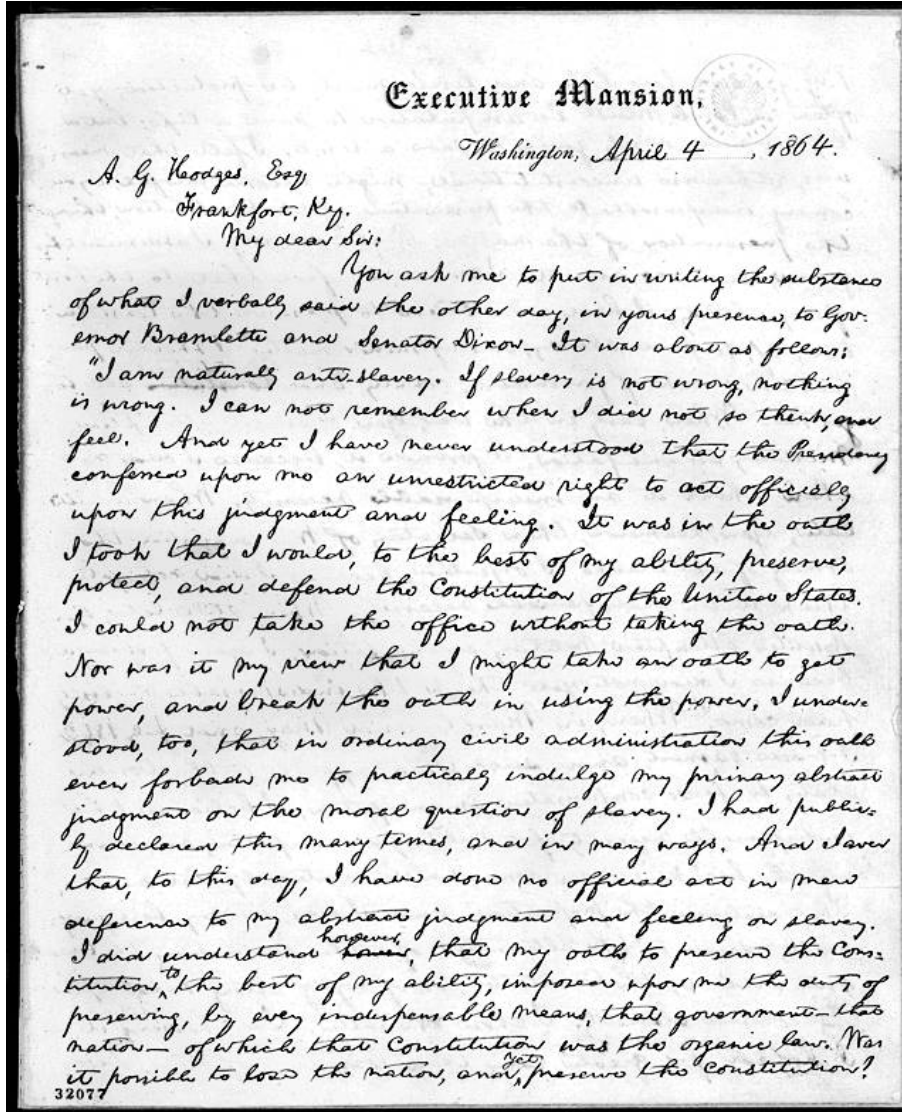 Executive Mansion,
Washington, April 4, 1864.
A. G. Hodges, Esq
Frankfort, Ky.
My dear Sir:
You ask me to put in writing the substance
of what I verbally said the other day, in your presence, to Gov-
ernor Bramlette and Senator Dixon— It was about as follows:
"I am naturally anti-slavery. If slavery is not wrong, nothing
is wrong. I can not remember when I did not so think, and
feel. And yet I have never understood that the Presidency
conferred upon me an unrestricted right to act officially
upon this judgment and feeling. It was in the oath
I took that I would, to the best of my ability, preserve,
protect, and defend the Constitution of the United States.
I could not take the office without taking the oath.
Nor was it my view that I might take an oath to get
power, and break the oath in using the power. I under-
stood, too, that in ordinary civil administration this oath
even forbade me to practically indulge my primary abstract
judgment on the moral question of slavery. I had public-
ly declared this many times, and in many ways. And I aver
that, to this day, I have done no official act in mere
deference to my abstract judgment and feeling on slavery.
I did understand however, that my oath to preserve the Con-
stitution to the best of my ability, imposed upon me the duty of
preserving, by every indispensable means, that government— that
nation— of which that Constitution was the organic law. Was
it possible to lose the nation, and yet preserve the Constitution?
32077